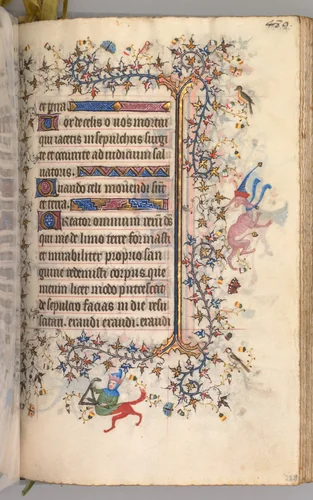 439.
et terra
Vox de celis o vos mortui
qui iacetis in sepulchris surgi
te et venite ad iudicium sal
uatoris.
Quando celi mouendi sunt
et terra.
Creator omnium rerum deus
qui me de limo terre formasti
et mirabiliter proprio san
guine redemisti corpus que
meum licet modo putrescat
de sepulcro facias in die resu
scitari. exaudi exaudi. exaudi